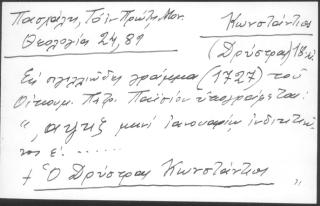 Πασχάλη, Τόϊν Πρώτη. Μον. Κωνστάντιος
Θεολογία 24, 89 (Δρύστρας) 18 αἰ.
Εἰς σιγιλλιῶδες γράμμα (1727) τοῦ
Οἰκουμ. Πατρ. Παϊσίου ὑπογράφεται:
“, αψκζ μηνὶ ἰανουαρίῳ ἰνδικτιῶ-
νος ε΄. ......
+ Ὁ Δρύστρας Κωνστάντιος